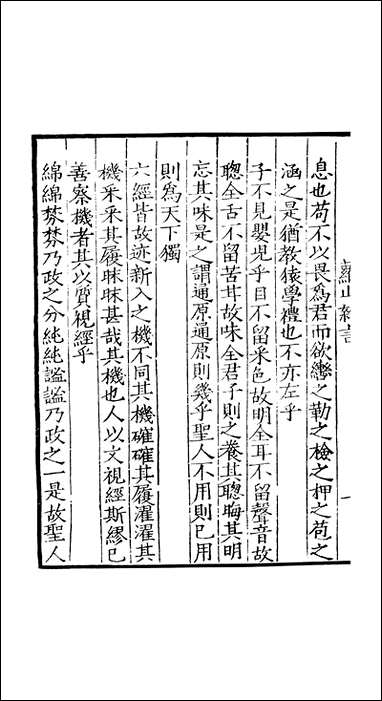 蘿山雜言
一
息也苟不以畏為君而欲轡之勒之檢之押之苞之
涵之是猶教猿學禮也不亦左乎
子不見嬰兒乎目不留采色故明全耳不留聲音故
聰全舌不留苦甘故味全君子則之養其聰晦其明
忘其味是之謂通原通原則幾乎聖人不用則已用
則為天下獨
六經皆故迹新入之機不同其機確確其履濯濯其
機采采其履昧昧甚哉其機也人以文視經斯繆已
善察機者其以質視經乎
綿綿棼棼乃政之分純純謐謐乃政之一是故聖人